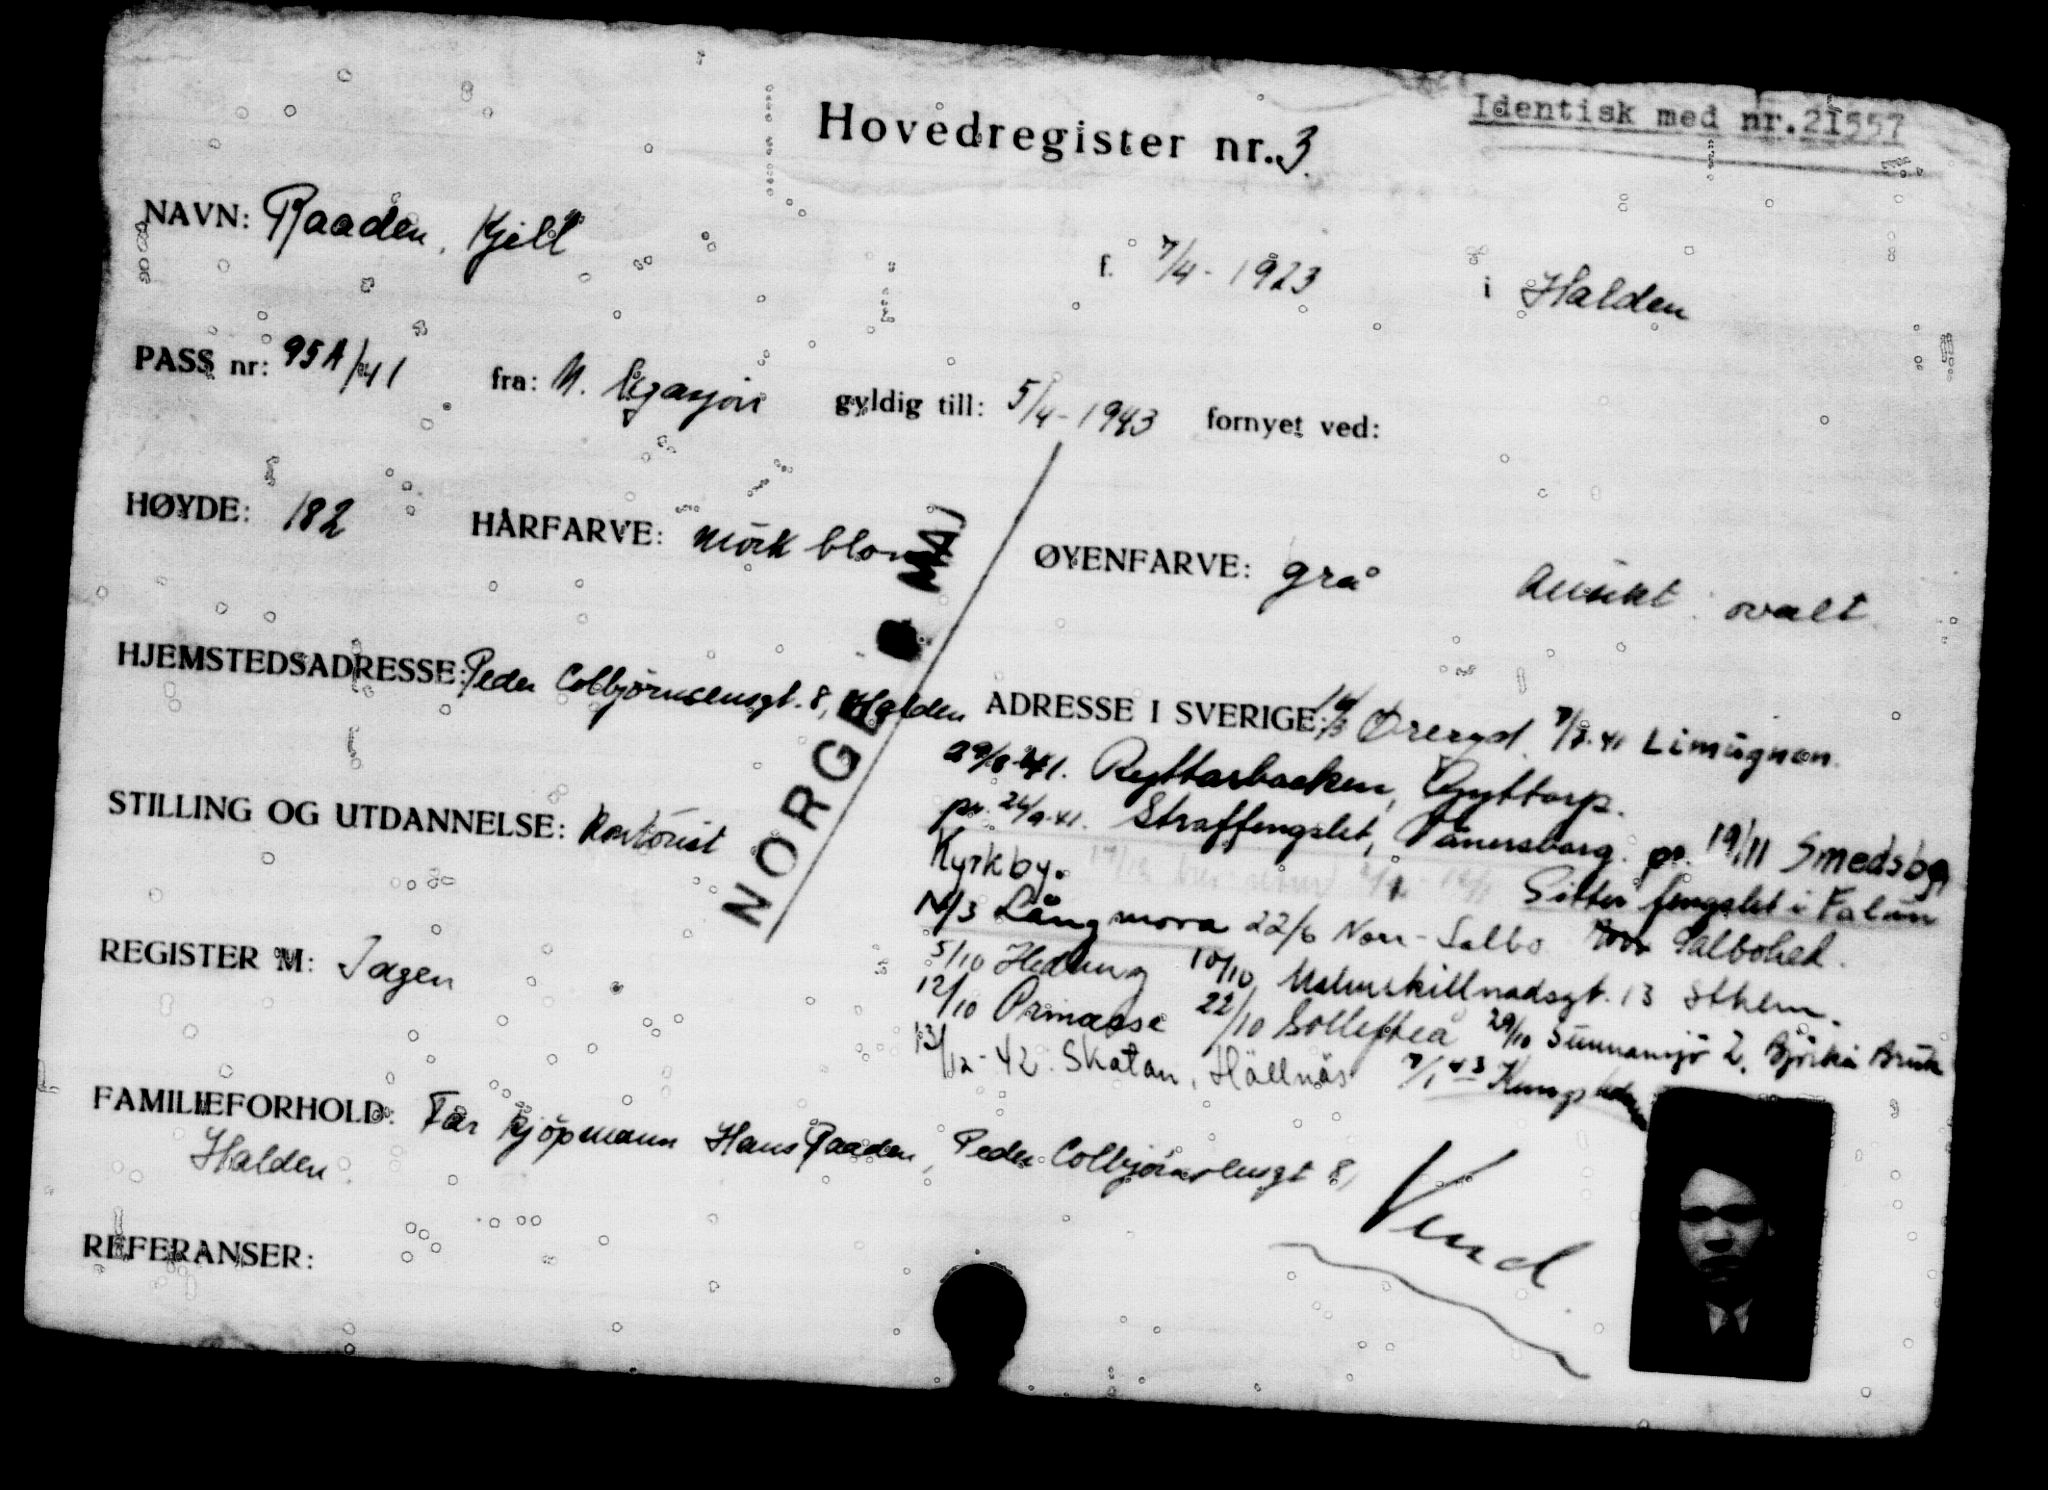 Identisk med nr.21557
Hovedregister nr. 3.
NAVN: Raaden, Kjell f. 7/4-1923 i Halden
PASS nr: 95A/41 fra: N. legasjon gyldig till: 5/4-1943 fornyet ved:
HØYDE: 182 HÅRFARVE: mörk blond ØYENFARVE: grå Ansikt: ovalt.
NORGE MAJ
HJEMSTEDSADRESSE: Peder Colbjørnsensgt. 8, Halden
STILLING OG UTDANNELSE: Kontorist
REGISTER M: Ingen
ADRESSE I SVERIGE: Öreryd. 7/7-41 Limugnen.
29/8-41. Ryttarbacken, Gyttorp.
pr. 24/9-41. Straffengslet, Vänersborg. pr. 19/11 Smedsbo,
Kyrkby. Sitter fengslet i Falun
Långmora 22/6 Norr-Salbo Salbohed.
5/10 Hedung 10/10 Malmskillnadsgt. 13 Sthlm.
12/10 Prinæsse 22/10 Sollefteå 29/10 Sunnansjö 2, Björkå Bruk
13/12-42. Skatan, Hällnäs 7/1 43
FAMILIEFORHOLD: Far Kjöpmann Hans Raaden, Peder Colbjörnsensgt 8,
Halden.
Vend.
REFERANSER: